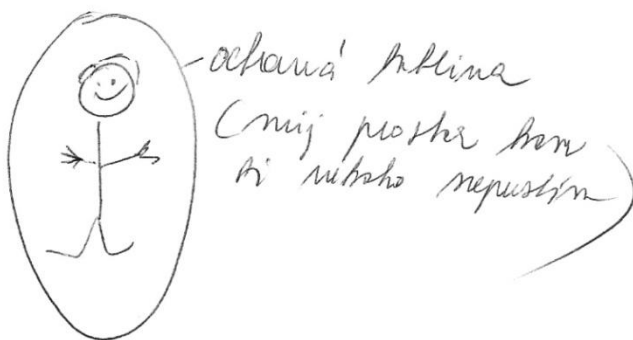 ochraná bublina
(můj prostor kam
si nikoho nepustím)